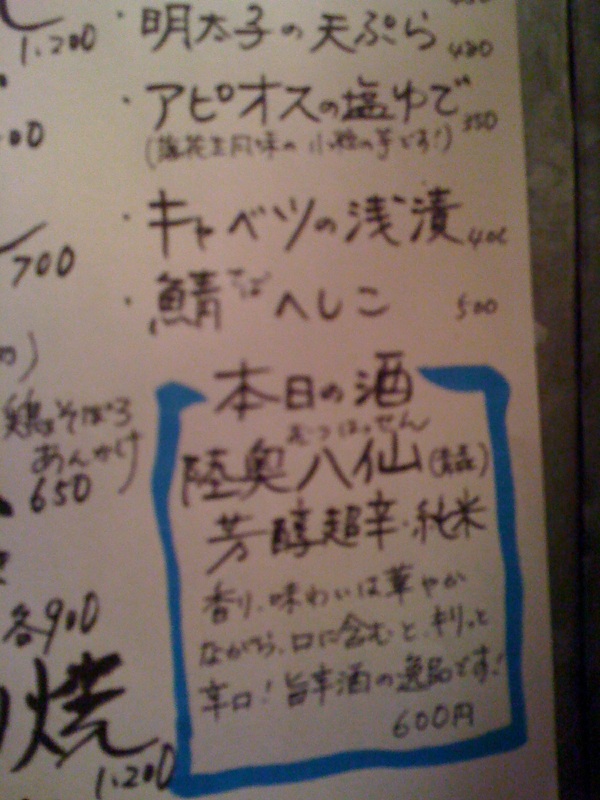 1.200
・明太子の天ぷら 480
・アピオスの塩ゆで 350
(落花生風味の小粒の芋です!)
00
・キャベツの浅漬 400
700
・鯖さばへしこ 500
鶏そぼろ
あんかけ
650
各900
焼
1.200
本日の酒
むつはっせん
陸奥八仙(青森)
芳醇超辛・純米
香り、味わいは華やか
ながら、口に含むと、キリッと
辛口!旨辛酒の逸品です!
600円